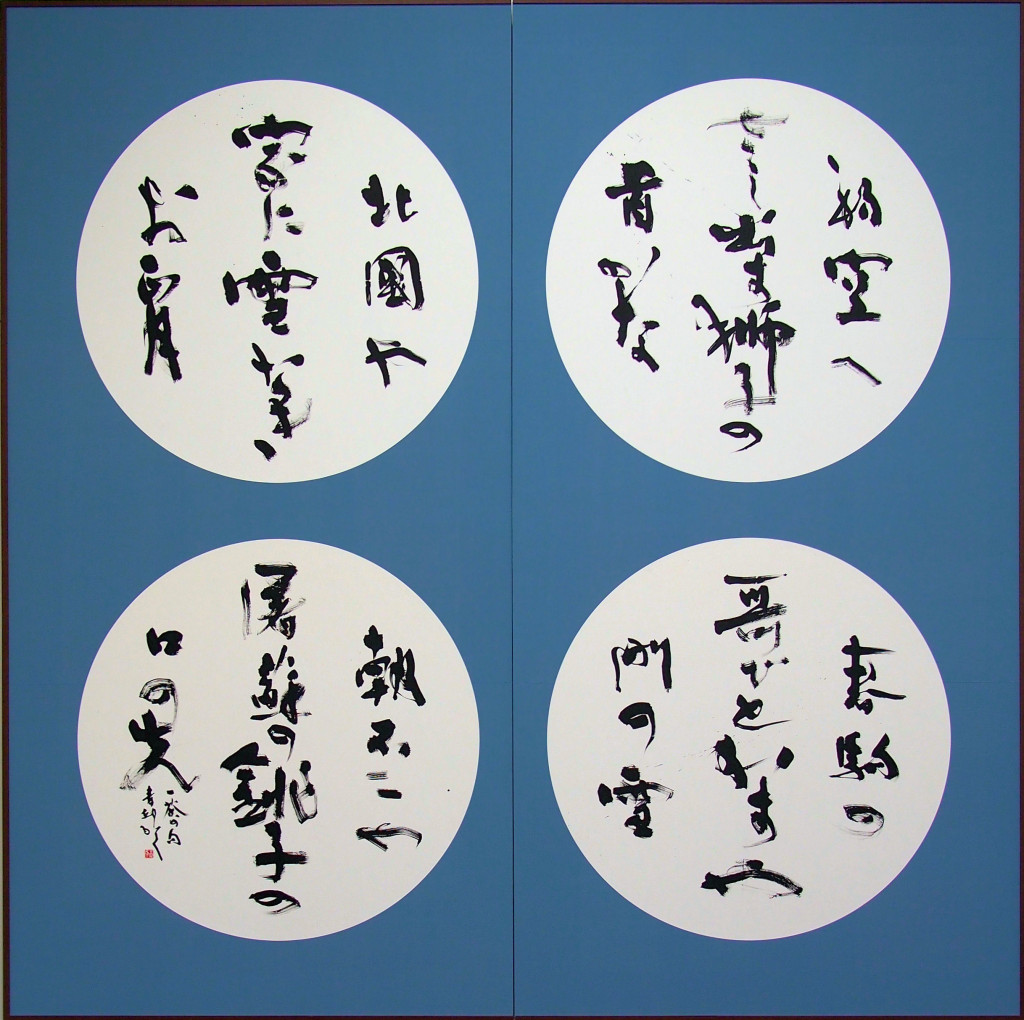 初空へ
さし出す獅子の
首かな
春駒の
哥でとかすや
門の雪
北國や
家に雪なき
お正月
朝不二や
屠蘇の銚子の
口の先
一茶の句